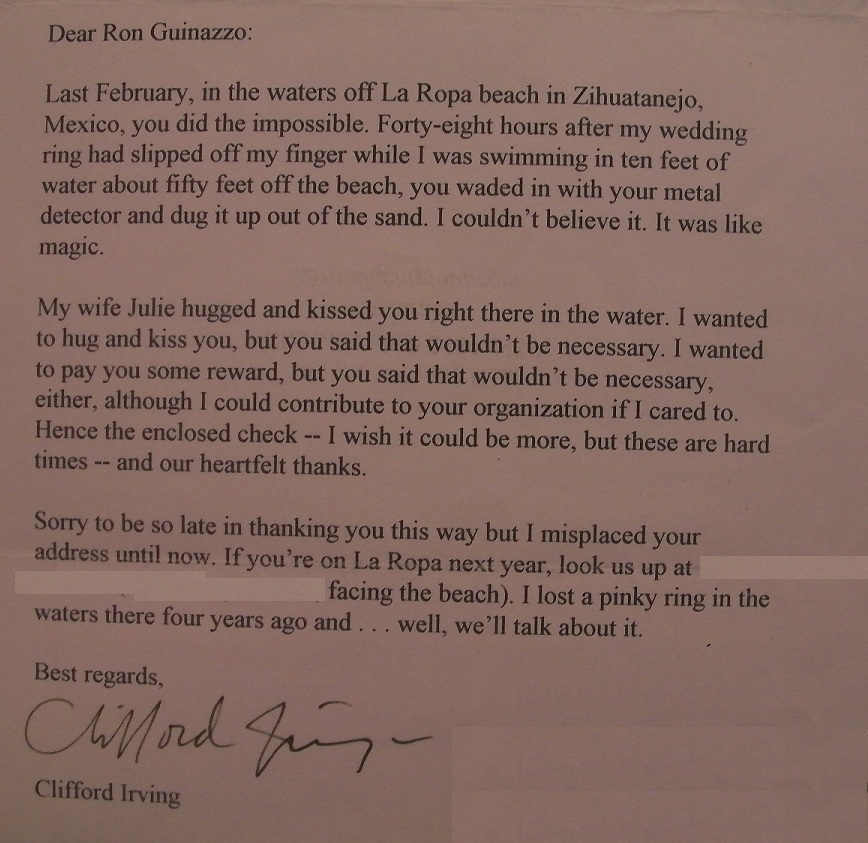 Dear Ron Guinazzo:
Last February, in the waters off La Ropa beach in Zihuatanejo,
Mexico, you did the impossible. Forty-eight hours after my wedding
ring had slipped off my finger while I was swimming in ten feet of
water about fifty feet off the beach, you waded in with your metal
detector and dug it up out of the sand. I couldn't believe it. It was like
magic.
My wife Julie hugged and kissed you right there in the water. I wanted
to hug and kiss you, but you said that wouldn't be necessary. I wanted
to pay you some reward, but you said that wouldn't be necessary,
either, although I could contribute to your organization if I cared to.
Hence the enclosed check -- I wish it could be more, but these are hard
times -- and our heartfelt thanks.
Sorry to be so late in thanking you this way but I misplaced your
address until now. If you're on La Ropa next year, look us up at
facing the beach). I lost a pinky ring in the
waters there four years ago and . . . well, we'll talk about it.
Best regards,
Clifford Irving
Clifford Irving